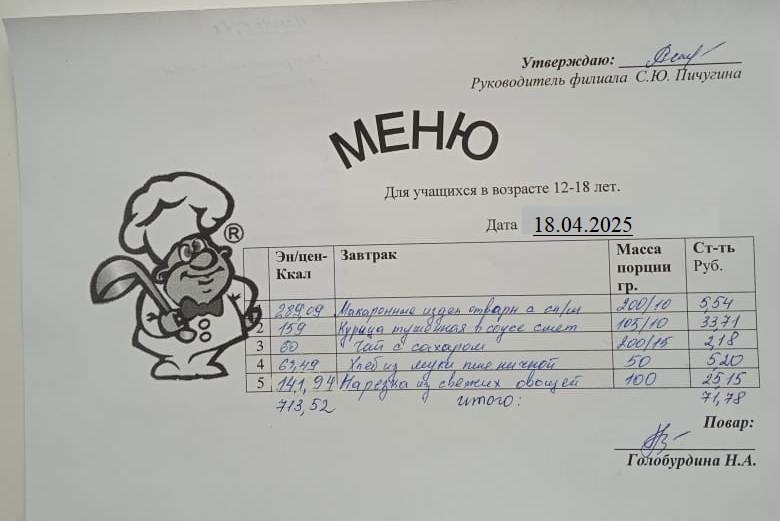 Утверждаю:
Руководитель филиала С.Ю. Пичугина
МЕНЮ
Для учащихся в возрасте 12-18 лет.
Дата 18.04.2025
®
Эн/цен-Ккал Завтрак Масса порции гр. Ст-ть Руб.
289,09 Макаронные издел отварн с сл/м 200/10 5,54
2 159 Курица тушенная в соусе смет 105/10 33,71
3 60 Чай с сахаром 200/15 2,18
4 63,49 Хлеб из муки пшеничной 50 5,20
5 141,94 Нарезка из свежих овощей 100 25,15
713,52 итого: 71,78
Повар:
Голобурдина Н.А.